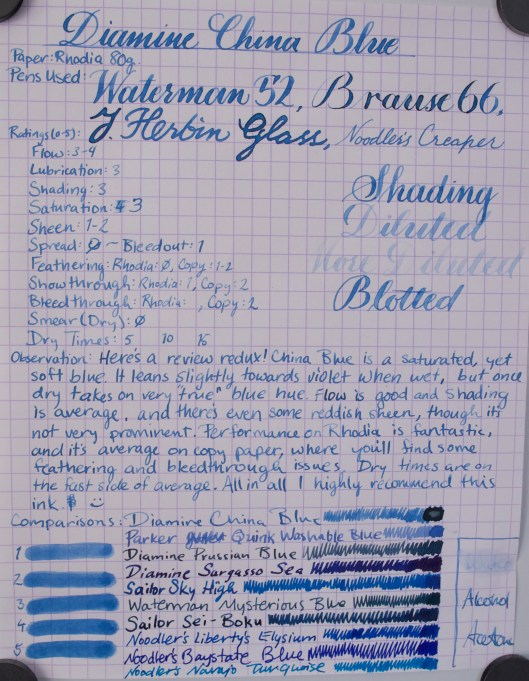 Diamine China Blue
Paper: Rhodia 80g.
Pens Used:
Waterman 52, Brause 66,
J. Herbin Glass, Noodler's Creaper
Ratings (0-5):
Flow: 3-4
Lubrication: 3
Shading: 3
Saturation: 3
Sheen: 1-2
Spread: Ø ~ Bleedout: 1
Feathering: Rhodia: Ø, Copy: 1-2
Showthrough: Rhodia: 1, Copy: 2
Bleedthrough: Rhodia: , Copy: 2
Smear (Dry): Ø
Dry Times: 5 10 15
Shading
Diluted
More Diluted
Blotted
Observation: Here's a review redux! China Blue is a saturated, yet
soft blue. It leans slightly towards violet when wet, but once
dry takes on very "true" blue hue. Flow is good and shading
is average, and there's even some reddish sheen, though its
not very prominent. Performance on Rhodia is fantastic,
and it's average on copy paper, where you'll find some
feathering and bleedthrough issues. Dry times are on
the fast side of average. All in all I highly recommend this
ink.
Comparisons: Diamine China Blue
Parker Quink Washable Blue
1 Diamine Prussian Blue
Diamine Sargasso Sea
2 Sailor Sky High
3 Waterman Mysterious Blue
4 Sailor Sei-Boku
Noodler's Liberty's Elysium
5 Noodler's Baystate Blue
Noodler's Navajo Turquoise
Alcohol
Acetone